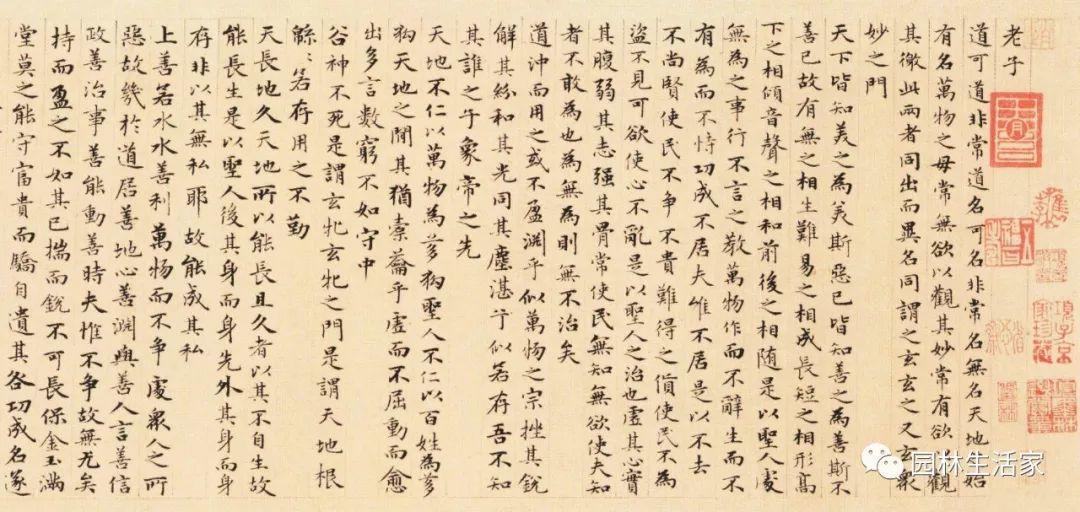 老子
道可道非常道名可名非常名無名天地之始
有名萬物之母常無欲以觀其妙常有欲以觀
其徼此兩者同出而異名同謂之玄玄之又玄衆
妙之門
天下皆知美之為美斯惡已皆知善之為善斯不
善已故有無之相生難易之相成長短之相形高
下之相傾音聲之相和前後之相隨是以聖人處
無為之事行不言之教萬物作而不辭生而不
有為而不恃功成不居夫惟不居是以不去
不尚賢使民不爭不貴難得之貨使民不為
盜不見可欲使心不亂是以聖人之治也虛其心實
其腹弱其志强其骨常使民無知無欲使夫知
者不敢為也為無為則無不治矣
道沖而用之或不盈淵乎似萬物之宗挫其銳
解其紛和其光同其塵湛兮似若存吾不知
其誰之子象帝之先
天地不仁以萬物為芻狗聖人不仁以百姓為芻
狗天地之間其猶橐籥乎虛而不屈動而愈
出多言數窮不如守中
谷神不死是謂玄牝玄牝之門是謂天地根
緜〻若存用之不勤
天長地久天地所以能長且久者以其不自生故
能長生是以聖人後其身而身先外其身而身
存非以其無私耶故能成其私
上善若水水善利萬物而不争處衆人之所
惡故幾於道居善地心善淵與善人言善信
政善治事善能動善時夫惟不争故無尤矣
持而盈之不如其已揣而銳不可長保金玉滿
堂莫之能守富貴而驕自遺其咎功成名遂
园林生活家